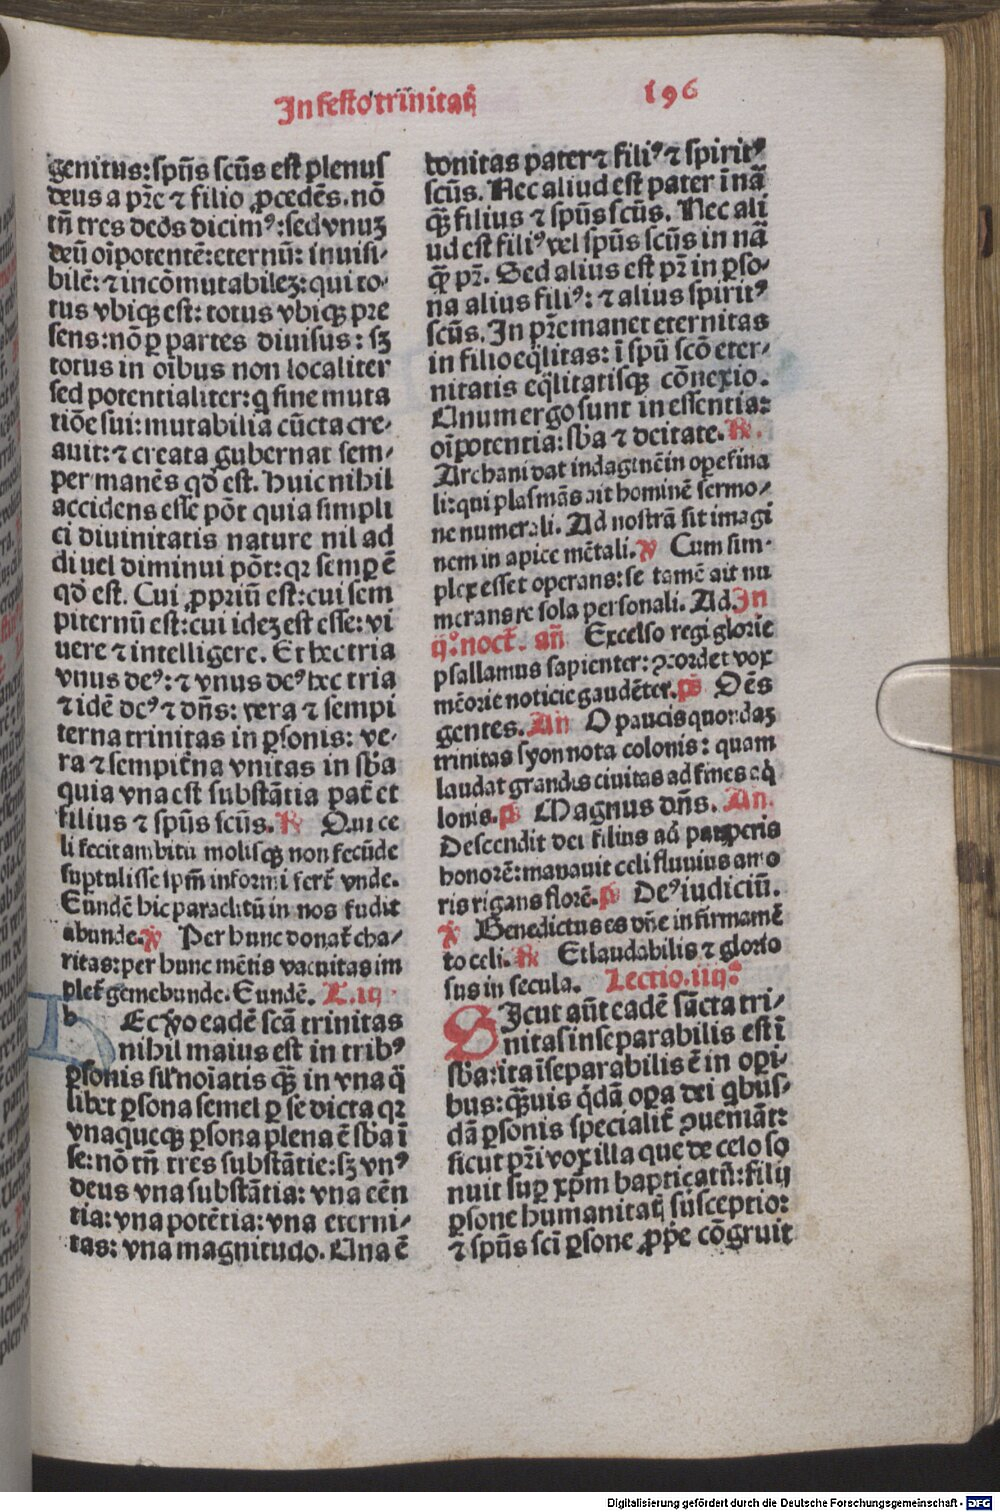 In festo trinitatꝭ
196
genitus: spūs scūs est plenus
deus a pr̄e ⁊ filio ꝓcedēs. nō
tn̄ tres deos dicimꝰ: sed vnuꝫ
deū oīpotentē: eternū: inuisi-
bilē: ⁊ incōmutabileꝫ: qui to-
tus vbiqꝫ est: totus vbiqꝫ pre
sens: nō ꝑ partes diuisus: sꝫ
totus in oībus non localiter
sed potentialiter: q̄ sine muta
tiōe sui: mutabilia cūcta cre-
auit: ⁊ creata gubernat sem-
per manēs qd̄ est. Huic nihil
accidens esse pōt quia simpli
ci diuinitatis nature nil ad
di uel diminui pōt: qꝛ semꝑ ē
qd̄ est. Cui ꝓpriū est: cui sem
piternū est: cui ideꝫ est esse: vi
uere ⁊ intelligere. Et hec tria
vnus deꝰ: ⁊ vnus deꝰ hec tria
⁊ idē deꝰ ⁊ dn̄s: vera ⁊ sempi
terna trinitas in ꝑsonis: ve-
ra ⁊ sempit̄na vnitas in sb̄a
quia vna est substātia pat̄ et
filius ⁊ spūs scūs. ℟ Qui ce
li fecit ambitū molisqꝫ non fecūde
suꝑtulisse ip̄m informi fert̄ vnde.
Eundē hic paraclitū in nos fudit
abunde. ℣ Per hunc donat̄ cha-
ritas: per hunc mētis vacuitas im
plet̄ gemebunde. Eundē. L. iij
h Ec ꝟo eadē scā trinitas
nihil maius est in tribꝰ
ꝑsonis sil̄ noīatis qꝫ̄ in vna q̄
libet ꝑsona semel ꝑ se dicta qꝛ
vnaqueqꝫ ꝑsona plena ē sb̄a ī
se: nō tn̄ tres substātie: sꝫ vnꝰ
deus vna substātia: vna eēn
tia: vna potētia: vna eterni-
tas: vna magnitudo. Una ē
bonitas pater ⁊ filiꝰ ⁊ spiritꝰ
scūs. Nec aliud est pater ī nā
qꝫ̄ filius ⁊ spūs scūs. Nec ali
ud est filiꝰ vel spūs scūs in nā
qꝫ̄ pr̄. Sed alius est pr̄ in ꝑso-
na alius filiꝰ: ⁊ alius spiritꝰ
scūs. In pr̄e manet eternitas
in filio eq̄litas: ī spū scō eter-
nitatis eq̄litatisqꝫ cōnexio.
Unum ergo sunt in essentia:
oīpotentia: sb̄a ⁊ deitate. ℟.
Archani dat indaginē in opere fina
li: qui plasmās ait hominē sermo-
ne numerali. Ad nostrā sit imagi
nem in apice mētali. ℣ Cum sim-
plex esset operans: se tamē ait nu
merans re sola personali. Ad In
ij.º noct̄. an̄ Excelso regi glorie
psallamus sapienter: ꝯcordet vox
mēorie noticie gaudēter. ps̄ Oēs
gentes. An O paucis quondaꝫ
trinitas syon nota colonis: quam
laudat grandis ciuitas ad fines aq̄
lonis. ps̄ Magnus dn̄s. An.
Descendit dei filius ad pauperis
honorē: manauit celi fluuius amo
ris rigans florē. ps̄ Deꝰ iudiciū.
℣ Benedictus es dn̄e in firmamē
to celi. ℟ Et laudabilis ⁊ glorio
sus in secula. Lectio. iiijª
S Icut aūt eadē sācta tri-
nitas inseparabilis est ī
sb̄a: ita īseparabilis ē in oꝑi-
bus: qꝫ̄uis q̄dā oꝑa dei qͥbus-
dā ꝑsonis specialit̄ ꝯueniāt:
sicut pr̄i vox illa que de celo so
nuit suꝑ xp̄m baptiꝫatū: filij
ꝑsone humanitatꝭ susceptio:
⁊ spūs sci ꝑsone ꝓpe cōgruit
Digitalisierung gefördert durch die Deutsche Forschungsgemeinschaft - DFG